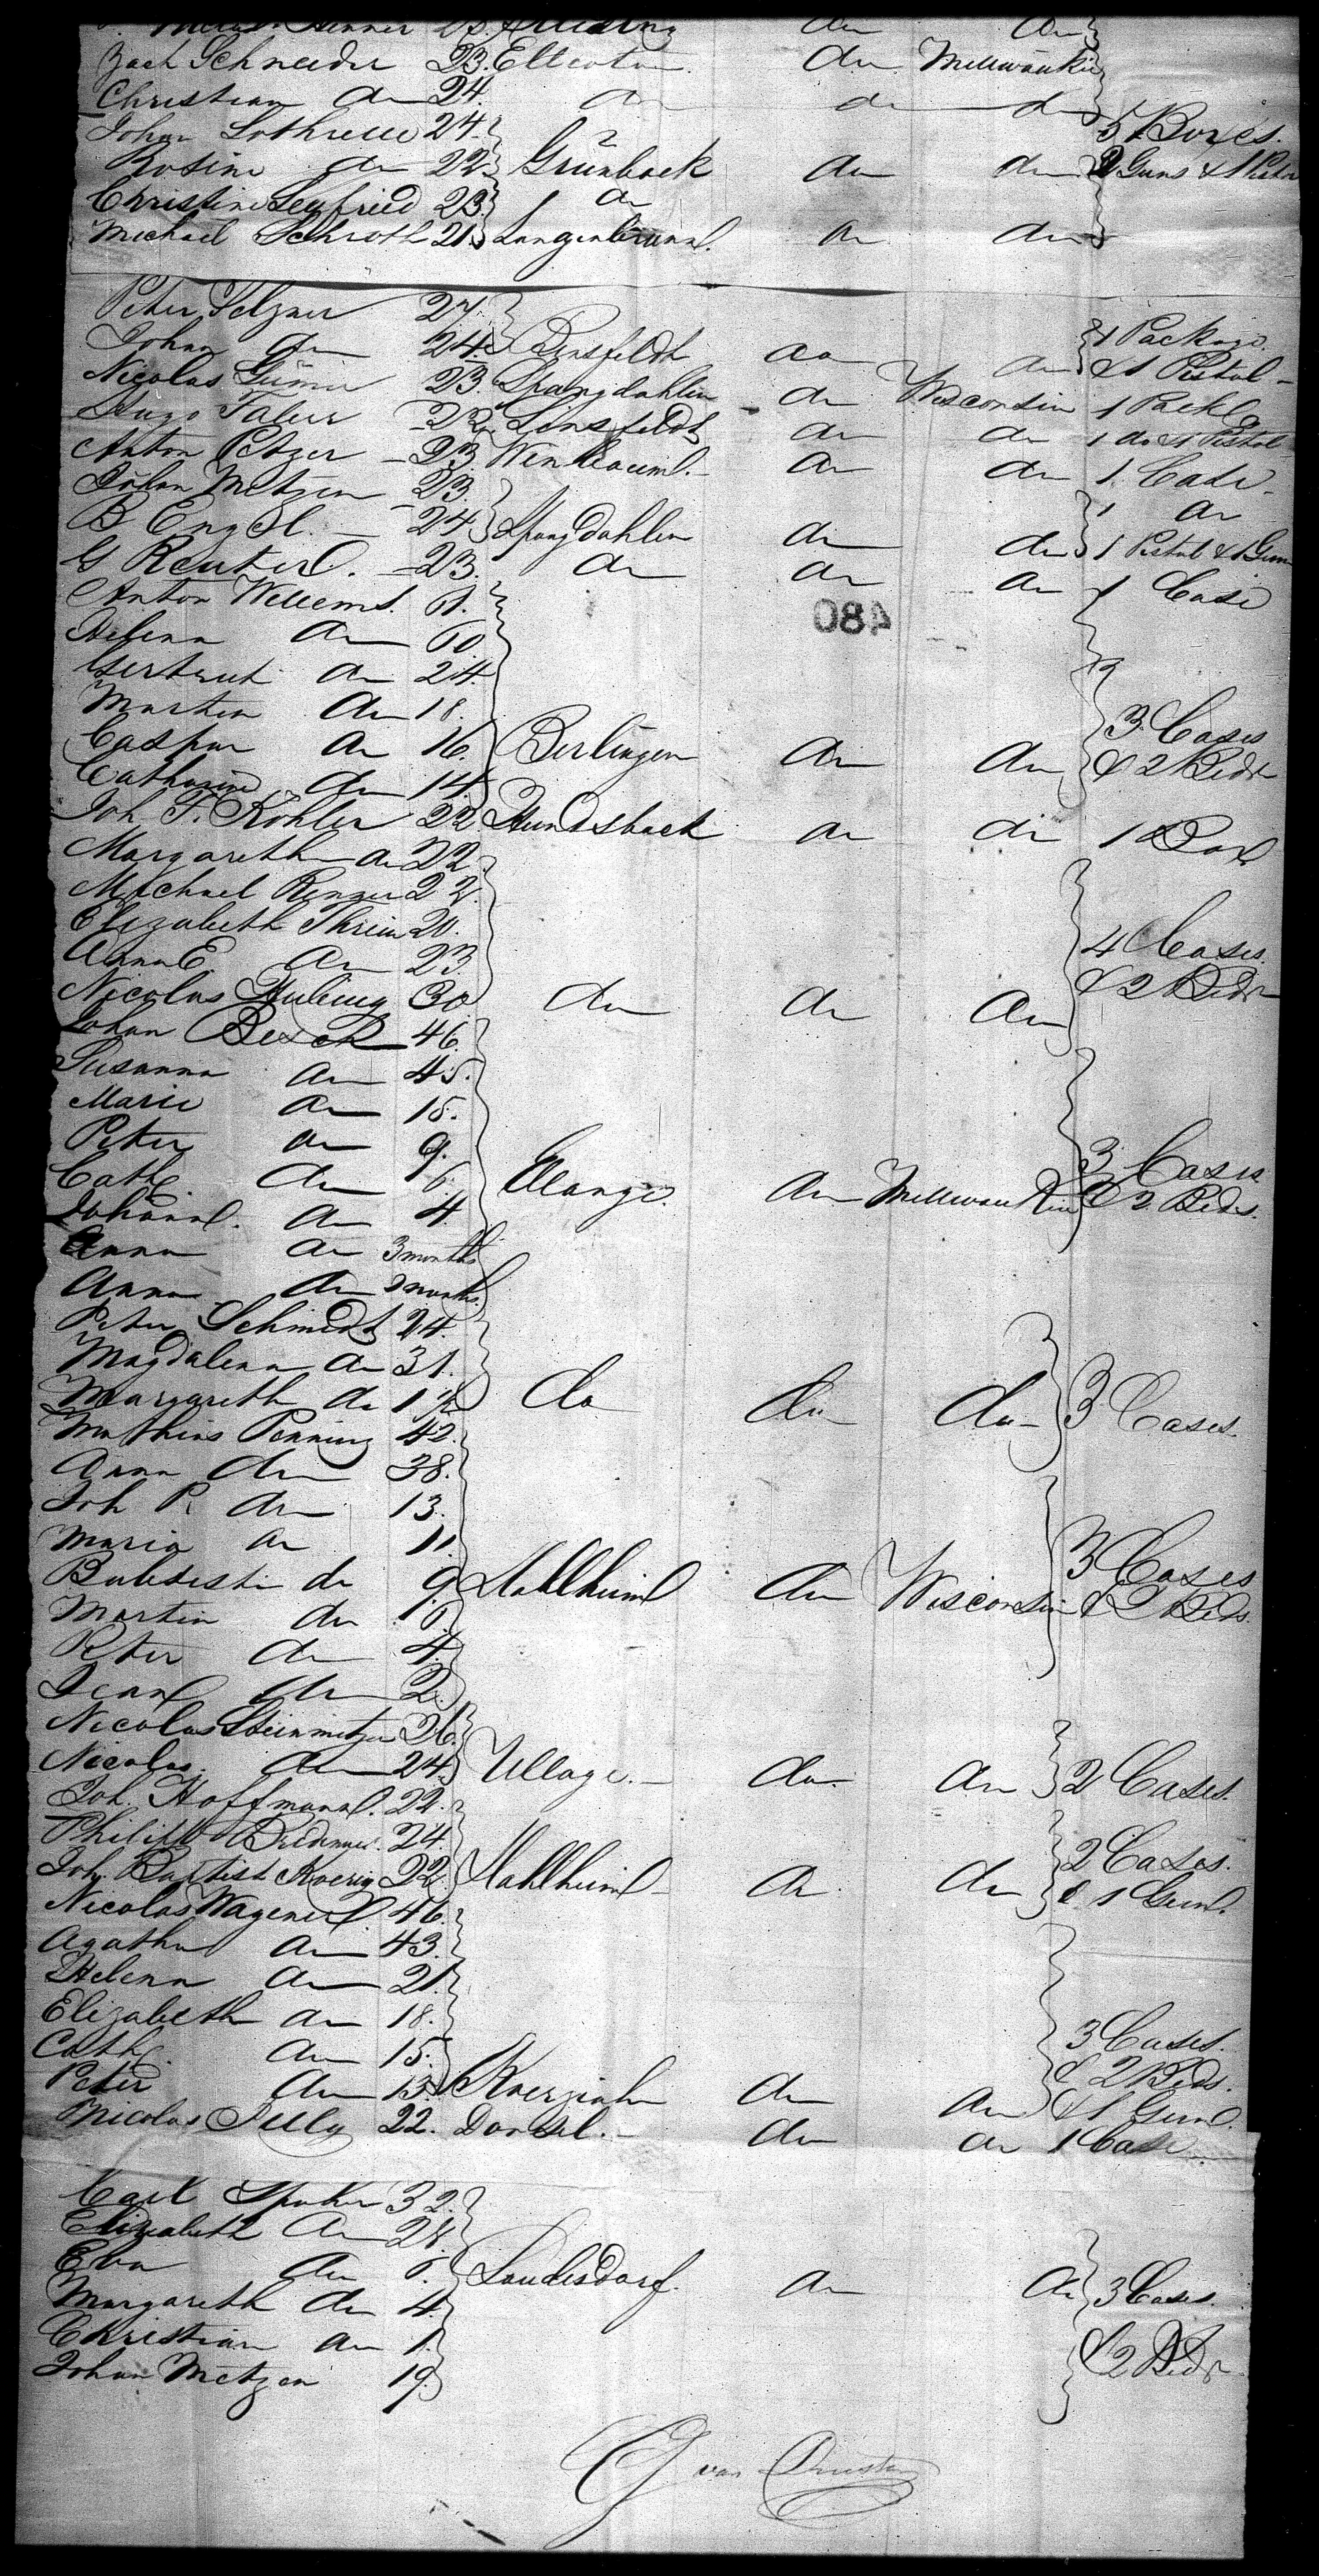 Zach Schneider 23. Ellerton do Millwaukie
Christian do 24. do do do
Johan Lothrell 24. 5 Boxes.
Rosine do 22 Grünback do do 2 Guns & 1 Pistol
Christine Seyfried 23. do
Michael Schroth 21. Langenbrand. do do
Peter Selzner 27. 1 Package
Johan do 24. Binsfeldt do do & 1 Pistol
Nicolas 23. Spangdahlem do Wisconsin 1 Package
Hugo Faber Linsfeldt do do 1 do & 1 Pistol
Anton Petzer 23. do do 1 Case
Johan Metzen 23. 1 do
B Engel 24 Spangdahlem do do 1 Pistol & 1 Gun
G Reuter 23. do do do 1 Case
Anton Willems. 61.
480
Helena do 60.
Gertrud do 24.
Martin do 18. 3 Cases
Caspar do 16. Berlingen do do & 2 Beds
Catharine do 14
Joh. F. Köhler 22 Hundsback do do 1 Box
Margareth do 22
Michael 22.
Elizabeth 20. 4 Cases.
Anna E. do 23. & 2 Beds
Nicolas 30. do do do
Johan Besch 46.
Susanna do 45.
Marie do 15.
Peter do 9. 3 Cases
Cath. do 6. Ellange. do Millwaukie & 2 Beds.
Johann. do 4.
Anna do 3 months
Anna do 3 months.
Peter Schmidt 24.
Magdalena do 31.
Margareth do 1½ do do do 3 Cases.
Mathias Penning 42.
Anna do 38.
Joh P. do 13.
Maria do 11. 3 Cases
do 9 Mahlheim do Wisconsin & 2 Beds.
Martin do 6.
Peter do 4.
Jean do 2.
Nicolas Steinmetzer 26.
Nicolas do 24. Ullage. do do 2 Cases.
Joh. Hoffmann. 22.
Philipp 24 2 Cases.
Joh. Baptist Koenig 22 Mahlheim do do & 1 Gun.
Nicolas Wagener 46.
Agatha do 43.
Helena do 21.
Elizabeth do 18. 3 Cases.
Cath. do 15. & 2 Beds.
Peter do 13 do do & 1 Gun.
Nicolas 22. do do 1 Case
Carl 32.
Elizabeth do 28.
Eva do 6. Laudesdorf. do do 3 Cases.
Margareth do 4.
Christian do 1. & 2 Beds
Johan Metzen 19.
G van